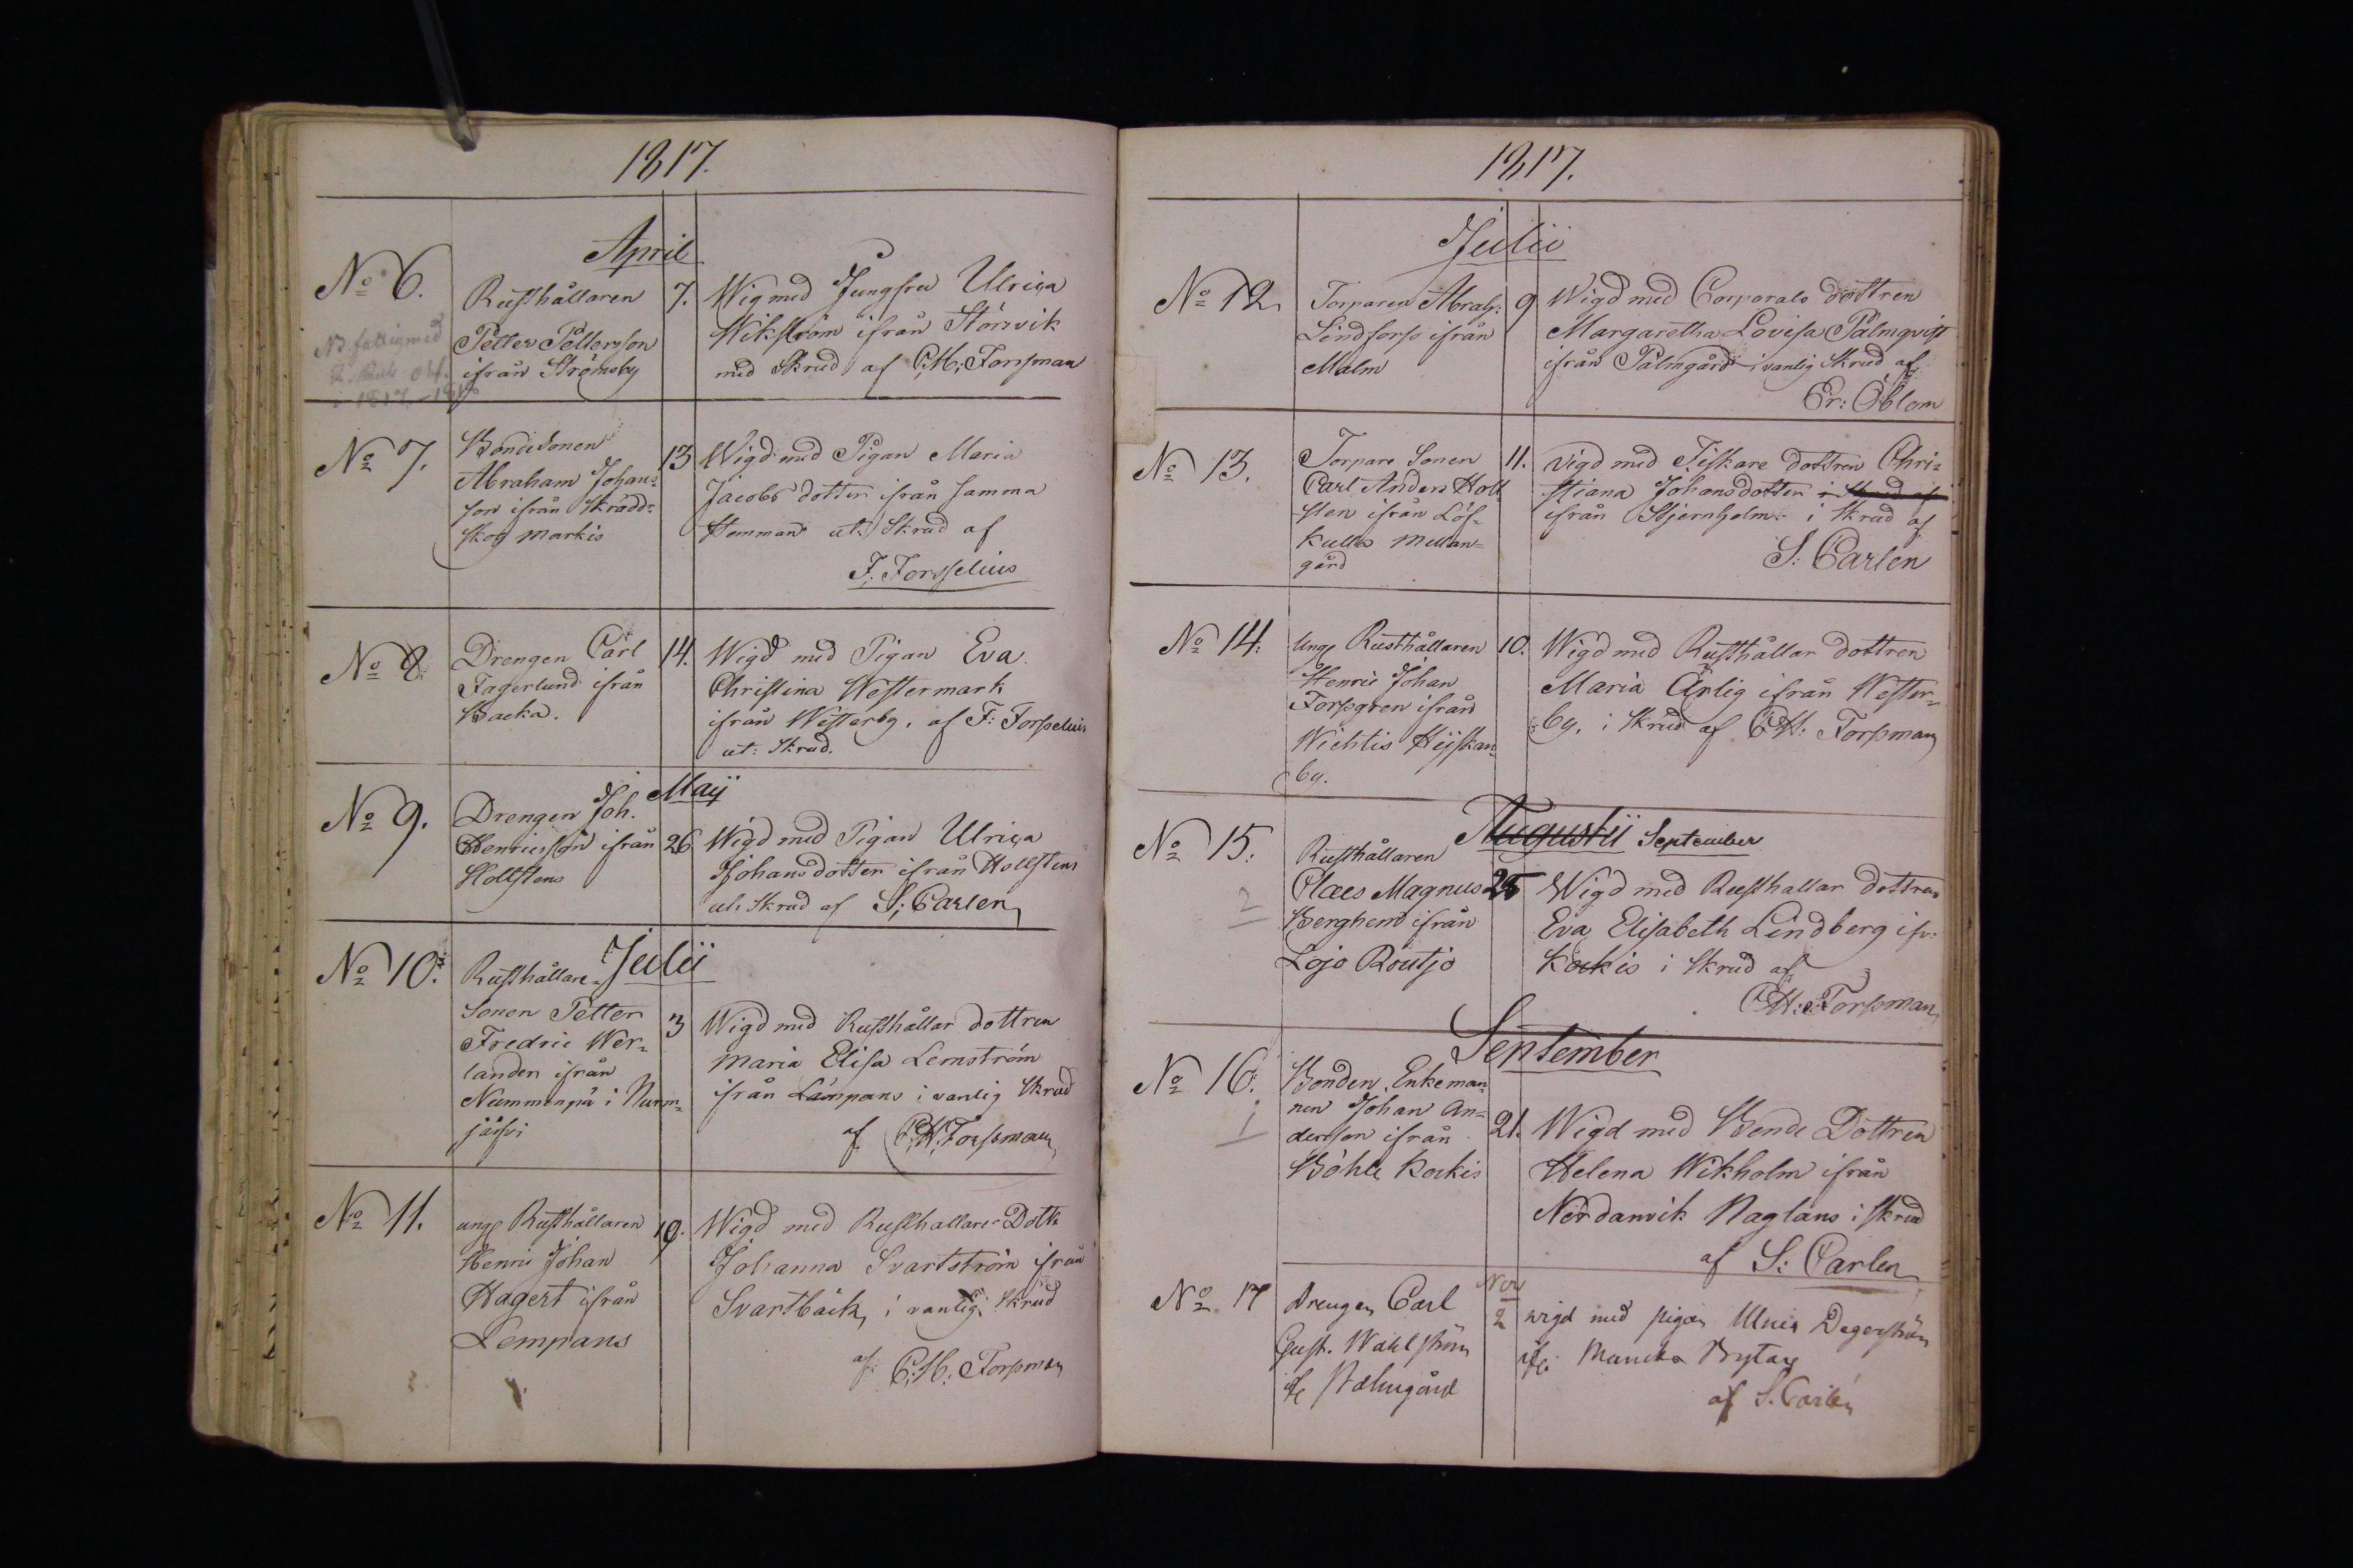 1817.
April
No 6.
Rusthållaren
Petter Pettersson
ifrån Strömsby
7.
Wig med Jungfru Ulrica
Wikström ifrån Störsvik
med Skrud af C.H. Forssman
No 7.
Bondesonen
Abraham Johans=
son ifrån Skrädd=
skog Markis
13
Wigd med Pigan Maria
Jacobs dotter ifrån samma
Hemman ut: Skrud af
F. Forsselius
No 8.
Drengen Carl
Fagerlund ifrån
Backa.
14.
Wigd med Pigan Eva
Christina Westermark
ifrån Westerby, af F: Forsselius
ut: Skrud.
May
No 9.
Drengen Joh.
Henricsson ifrån
Hollstens
26
Wigd med Pigan Ulrica
Johansdotter ifrån Hollstens
ut: Skrud af S: Carlen
Julii
No 10.
Rusthållare
Sonen Petter
Fredric Wer=
lander ifrån
Nummenpä i Nurm=
järfvi
3
Wigd med Rusthållar dottren
Maria Elisa Lemström
ifrån Lempans i vanlig Skrud
af C.H. Forssman
No 11.
unge Rusthållaren
Henric Johan
Hagert ifrån
Lempans
Wigd med Rusthållare Dott:
Johanna Svartström ifrån
Svartbäck, i vanlig Skrud
af C.H. Forssman
1817.
Julii
No 12
Torparen Abrah:
Lindforss ifrån
Malm
9
Wigd med Corporals dottren
Margaretha Lovisa Palmqvist
ifrån Palmgård i vanlig Skrud af
Er: Öblom
No 13.
Torpare Sonen
Carl Anders Holl
sten ifrån Löf=
kulla Mellan=
gård
11.
Vigd med Fiskare dottren Chri=
stiana Johansdotter i Skrud af
ifrån Stjernholm i Skrud af
S: Carlen
No 14.
Unge Rusthållaren
Henric Johan
Forssgren ifrån
Wichtis Hijskan=
by.
10.
Wigd med Rusthållar dottren
Maria Ärlig ifrån Wester=
by. i Skrud af C.H: Forssman
Augustii September
No 15.
2
Rusthållaren
Claes Magnus
Berghem ifrån
Lojo Routjo
25
Wigd med Rusthållar dottren
Eva Elisabeth Lindberg ifr:
Kockis i Skrud af
C.H: Forssman
September
No 16.
1
Bonden Enkeman=
nen Johan An=
dersson ifrån
Böhle Kockis
21.
Wigd med Bonde Dottren
Helena Wikholm ifrån
Nordanvik Naglans i Skrud
af S: Carlen
No 17
Drengen Carl
Gust. Wahlström
fr Palmgård
Nov
2
wigd med pigan Ulrica Degerström
af S. Carlén